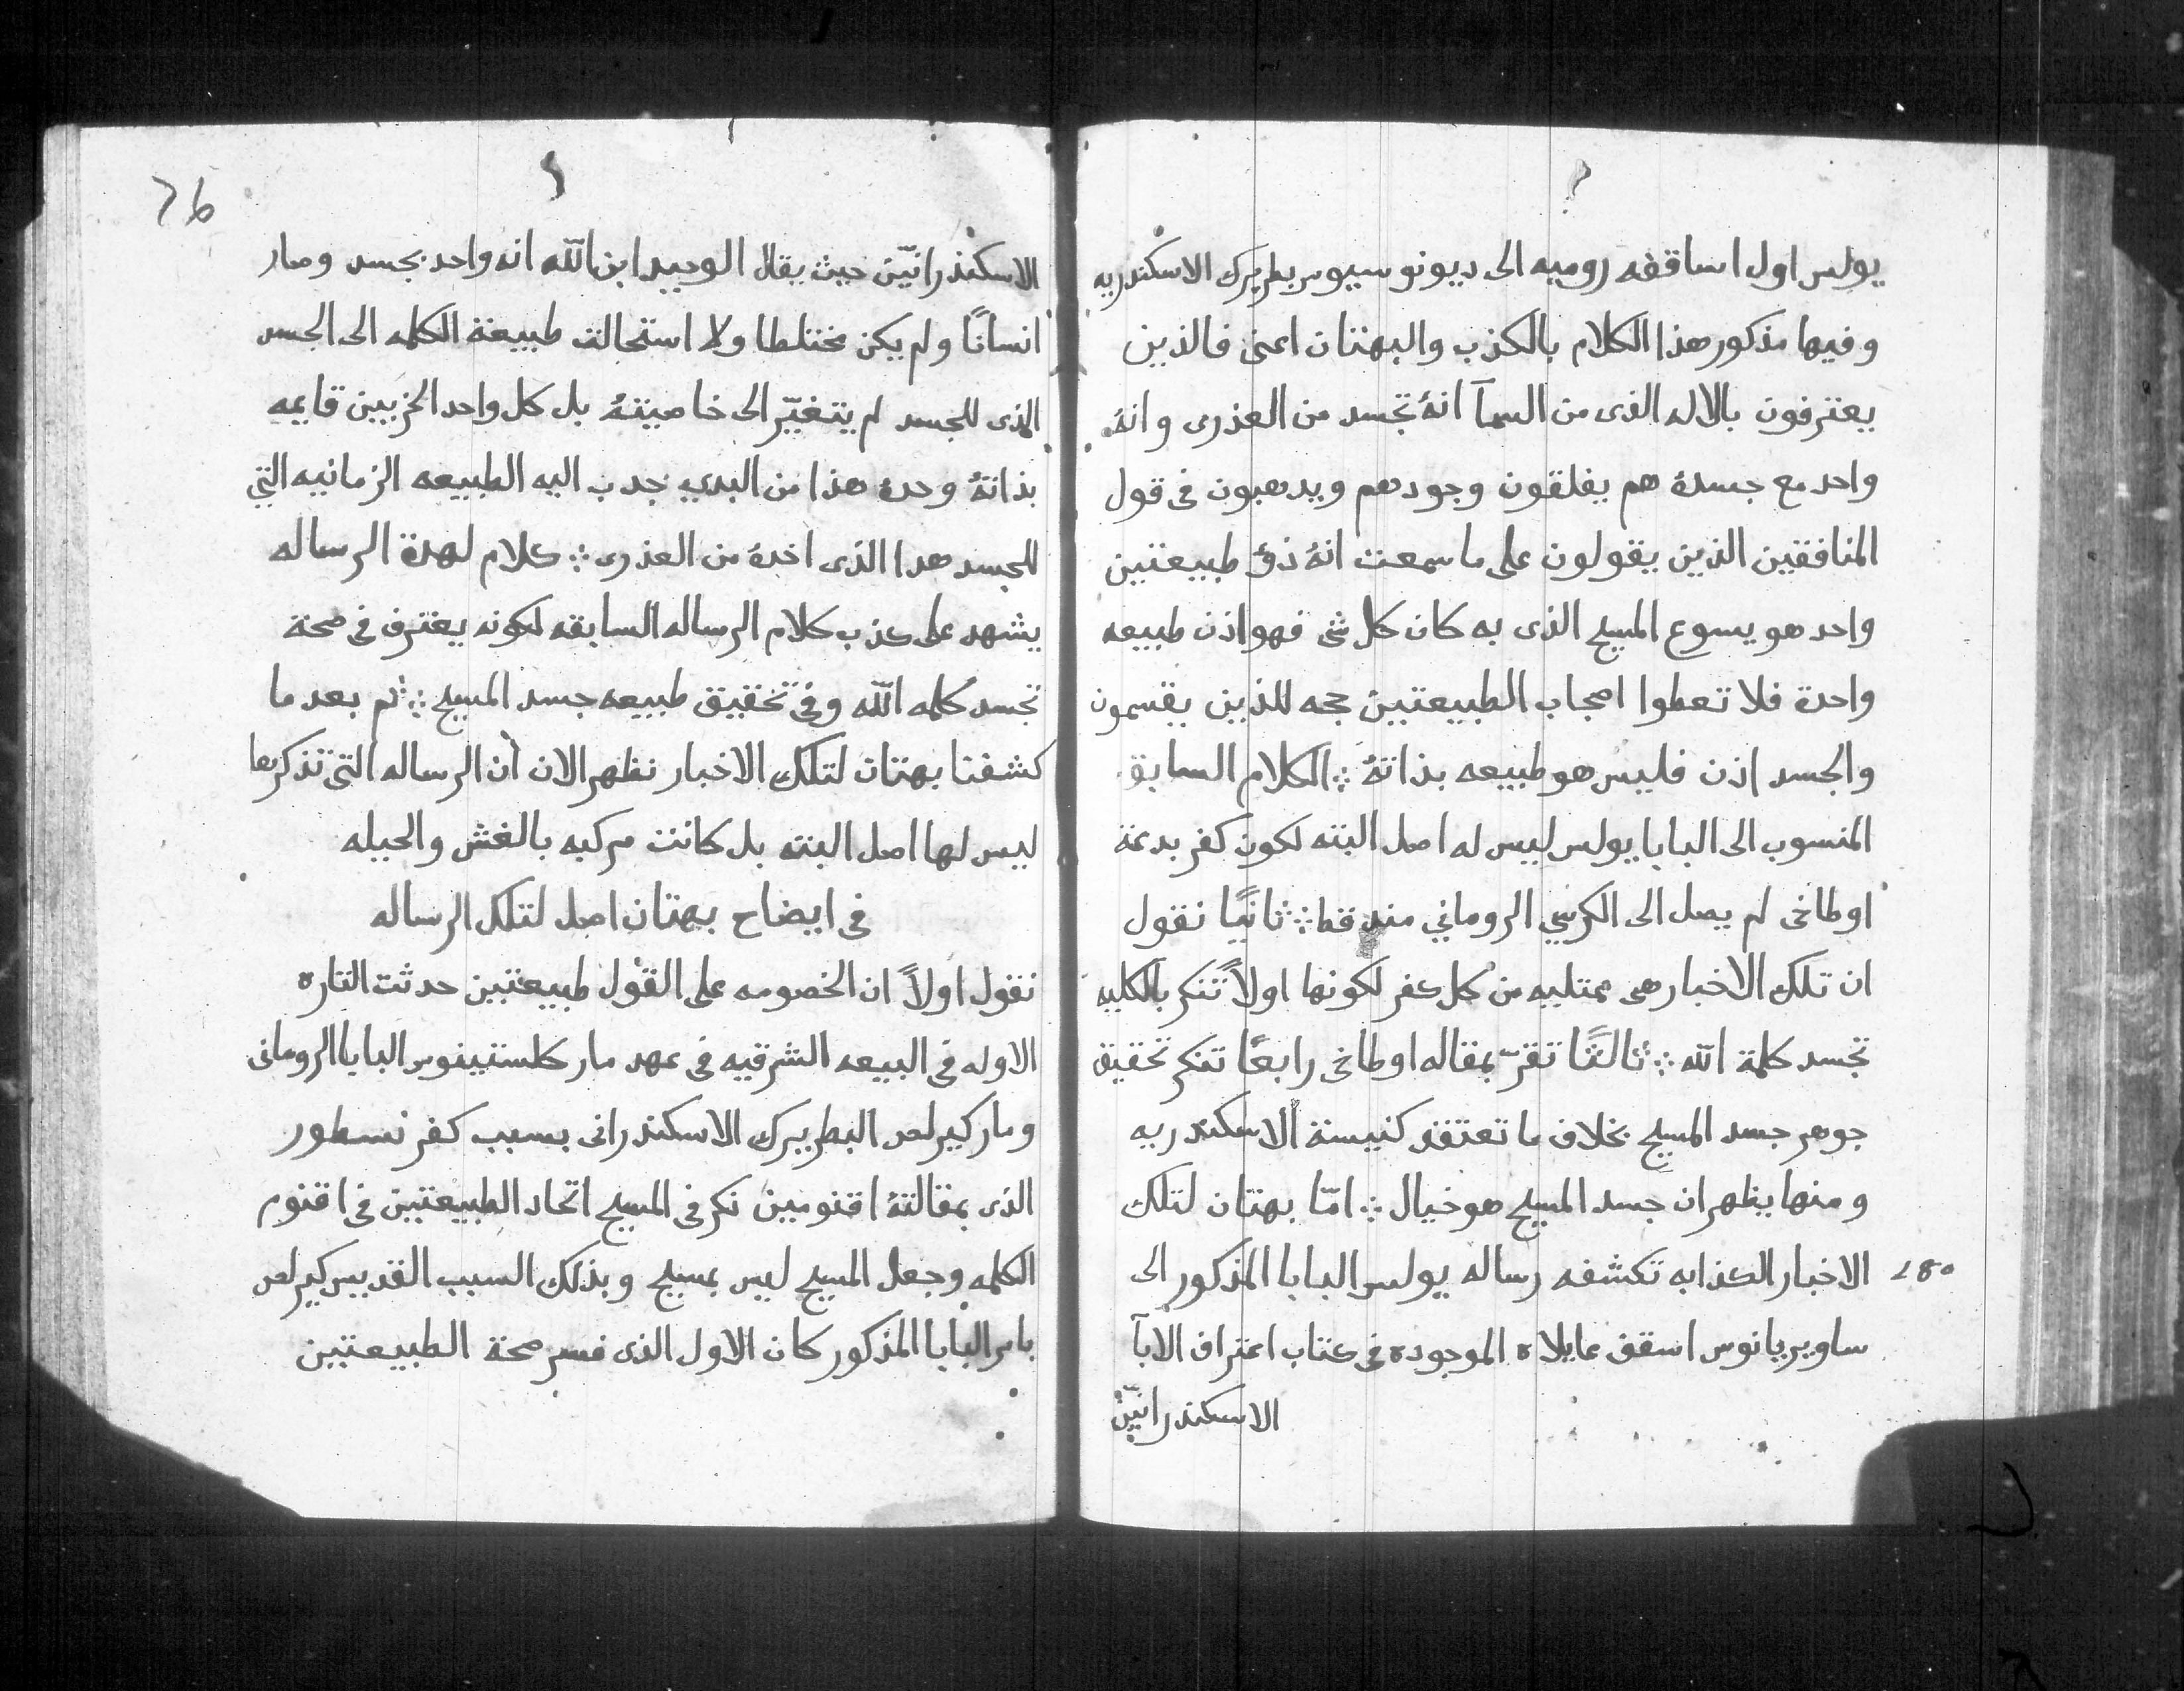 يولس اول اساقفه روميه الى ديونوسيوس بطريرك الاسكندريه
وفيها مذكور هذا الكلام بالكذب والبهتان اعنى فالذين
يعترفون بالاله الذى من السمآ انهُ تجسد من العذرى وانهُ
واحد مع جسدهُ هم يفلقون وجودهم ويدهبون فى قول
المنافقين الذين يقولون على ما سمعت انهُ ذو طبيعتين
واحد هو يسوع المسيح الذى به كان كل شى فهو اذن طبيعه
واحدة فلا تعطوا اصحاب الطبيعتين حجه للذين يقسمون
والجسد اذن فليس هو طبيعه بذاتهُ ؞ الكلام السابق
المنسوب الى البابا يولس ليس له اصل البته لكون كفر بدعة
اوطاخى لم يصل الى الكرسي الروماني منه قط ؞ ثانيًا نقول
ان تلك الاخبار هى ممتليه من كل كفر لكونها اولاً تنكر بالكليه
تجسد كلمة الله ؞ ثالثًا تقرّ بمقاله اوطاخى رابعًا تنكر تحقيق
جوهر جسد المسيح بخلاف ما تعتقد كنيسة الاسكندريه
ومنها يظهر ان جسد المسيح هو خيال ؞ امّا بهتان لتلك
الاخبار الكذابه تكشفه رساله يولس البابا المذكور الى
ساويريانوس اسقف عابلاه الموجوده فى كتاب اعتراف الابآ
الاسكندرانيّن
280
76
الاسكندرانيّن حيث يقال الوحيد ابن الله انه واحد بجسد وصار
انسانًا ولم يكن مختلطا ولا استحالت طبيعة الكلمه الى الجسد
الذى للجسد لم يتغيّر الى خاصيتهُ بل كل واحد الخزبين قايمه
بذاتهُ وحدهُ هذا من البدي جدب اليه الطبيعه الزمانيه التي
للجسد هدا الذى اخدهُ من العذرى ؞ كلام لهدة الرساله
يشهد على كذب كلام الرساله السابقه لكونه يعترف فى صحة
تجسد كلمه الله وفى تحقيق طبيعه جسد المسيح ؞ ثم بعد ما
كشفنا بهتان لتلك الاخبار نظهر الان أن الرساله التى تذكرها
ليس لها اصل البته بل كانت مركبه بالغش والحيله
فى ايضاح بهتان اصل لتلك الرساله
نقول اولاً ان الخصومه على القول طبيعتين حدثت التاره
الاوله فى البيعه الشرقيه فى عهد مار كلستينوس البابا الرومانى
ومار كيرلص البطريرك الاسكندرانى بسبب كفر نسطور
الذى بمقالتهُ اقنومين نكر فى المسيح اتحاد الطبيعتين فى اقنوم
الكلمه وجعل المسيح ليس بمسيح وبذلك السبب القديس كيرلص
بامر البابا المذكور كان الاول الذى فسر صحة الطبيعتين